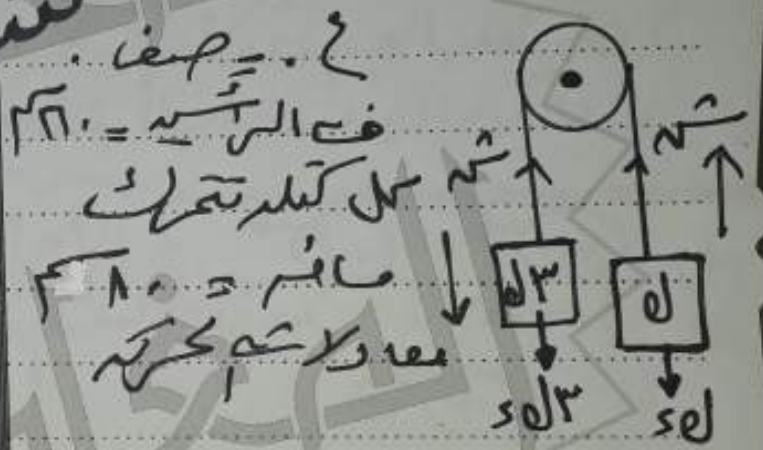 ع. = صفر
ف الرأسية = ١٦٠ سم
كل كتلة تتحرك
مسافة = ٨٠ سم
معادلات الحركة
شَ
شَ
٣ك
ك
٣ك ء
ك ء